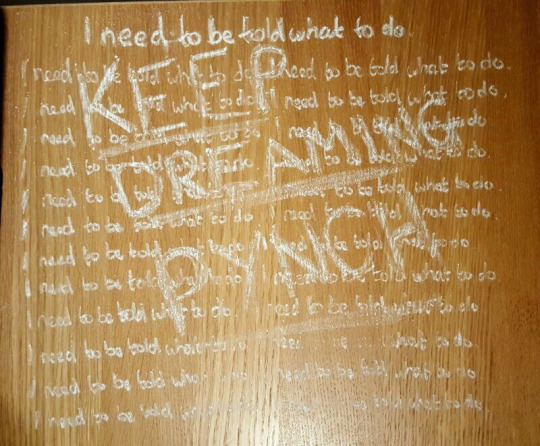 I need to be told what to do.
I need to be told what to do I need to be told what to do.
I need to be told what to do I need to be told what to do.
I need to be told what to do I need to be told what to do
I need to be told what to do I need to be told what to do.
I need to be told what to do I need to be told what to do.
I need to be told what to do I need to be told what to do.
I need to be told what to do I need to be told what to do
I need to be told what to do I need to be told what to do
I need to be told what to do. I need to be told what to do
I need to be told what to need what to do
I need to be told what need to be told what to do
I need to be told what to told what to do.
KEEP
DREAMING
PYNCH